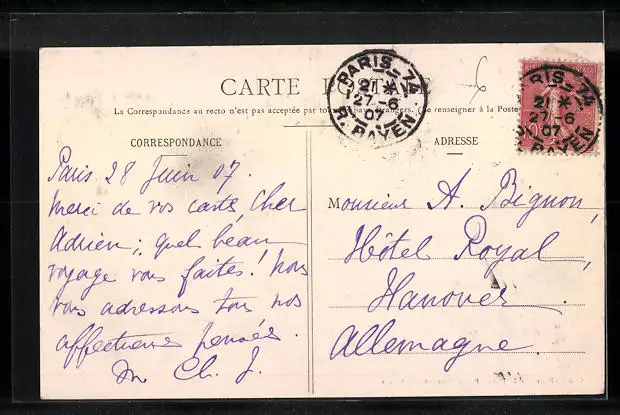 CARTE
La Correspondance au recto n'est pas acceptée par to
se renseigner à la Poste
PARIS-74
21 *
27-6
07
R. PAYEN
PARIS-74
21 *
27-6
07
PAYEN
CORRESPONDANCE
Paris 28 Juin 07.
Merci de vos cartes, cher
Adrien; quel beau
voyage vous faites! Nous
vous adressons tous nos
affectueuses pensées.
Ch. J.
ADRESSE
Monsieur A. Bignon,
Hôtel Royal,
Hanover
Allemagne